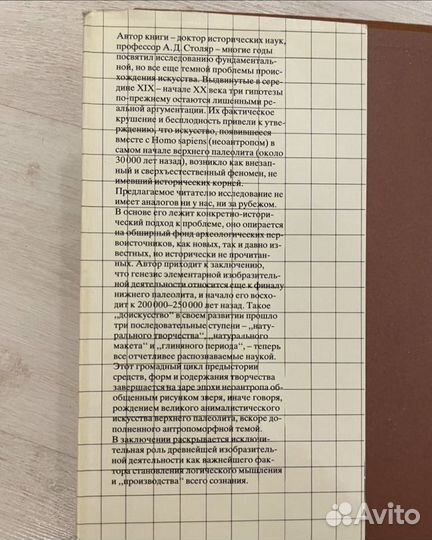 Автор книги – доктор исторических наук,
профессор А. Д. Столяр – многие годы
посвятил исследованию фундаменталь-
ной, но все еще темной проблемы проис-
хождения искусства. Выдвинутые в сере-
дине XIX – начале XX века три гипотезы
по-прежнему остаются лишенными ре-
альной аргументации. Их фактическое
крушение и бесплодность привели к утве-
рждению, что искусство, появившееся
вместе с Homo sapiens (неоантропом) в
самом начале верхнего палеолита (около
30 000 лет назад), возникло как внезап-
ный и сверхъестественный феномен, не
имевший исторических корней.
Предлагаемое читателю исследование не
имеет аналогов ни у нас, ни за рубежом.
В основе его лежит конкретно-истори-
ческий подход к проблеме, оно опирается
на обширный фонд археологических пер-
воисточников, как новых, так и давно из-
вестных, но исторически не прочитан-
ных. Автор приходит к заключению,
что генезис элементарной изобразитель-
ной деятельности относится еще к финалу
нижнего палеолита, и начало его восхо-
дит к 200 000–250 000 лет назад. Такое
„доискусство“ в своем развитии прошло
три последовательные ступени – „нату-
рального творчества“, „натурального
макета“ и „глиняного периода“, – теперь
все отчетливее распознаваемые наукой.
Этот громадный цикл предыстории
средств, форм и содержания творчества
завершается на заре эпохи неоантропа об-
общенным рисунком зверя, иначе говоря,
рождением великого анималистического
искусства верхнего палеолита, вскоре до-
полненного антропоморфной темой.
В заключении раскрывается исключи-
тельная роль древнейшей изобразитель-
ной деятельности как важнейшего фак-
тора становления логического мышления
и „производства“ всего сознания.
Avito